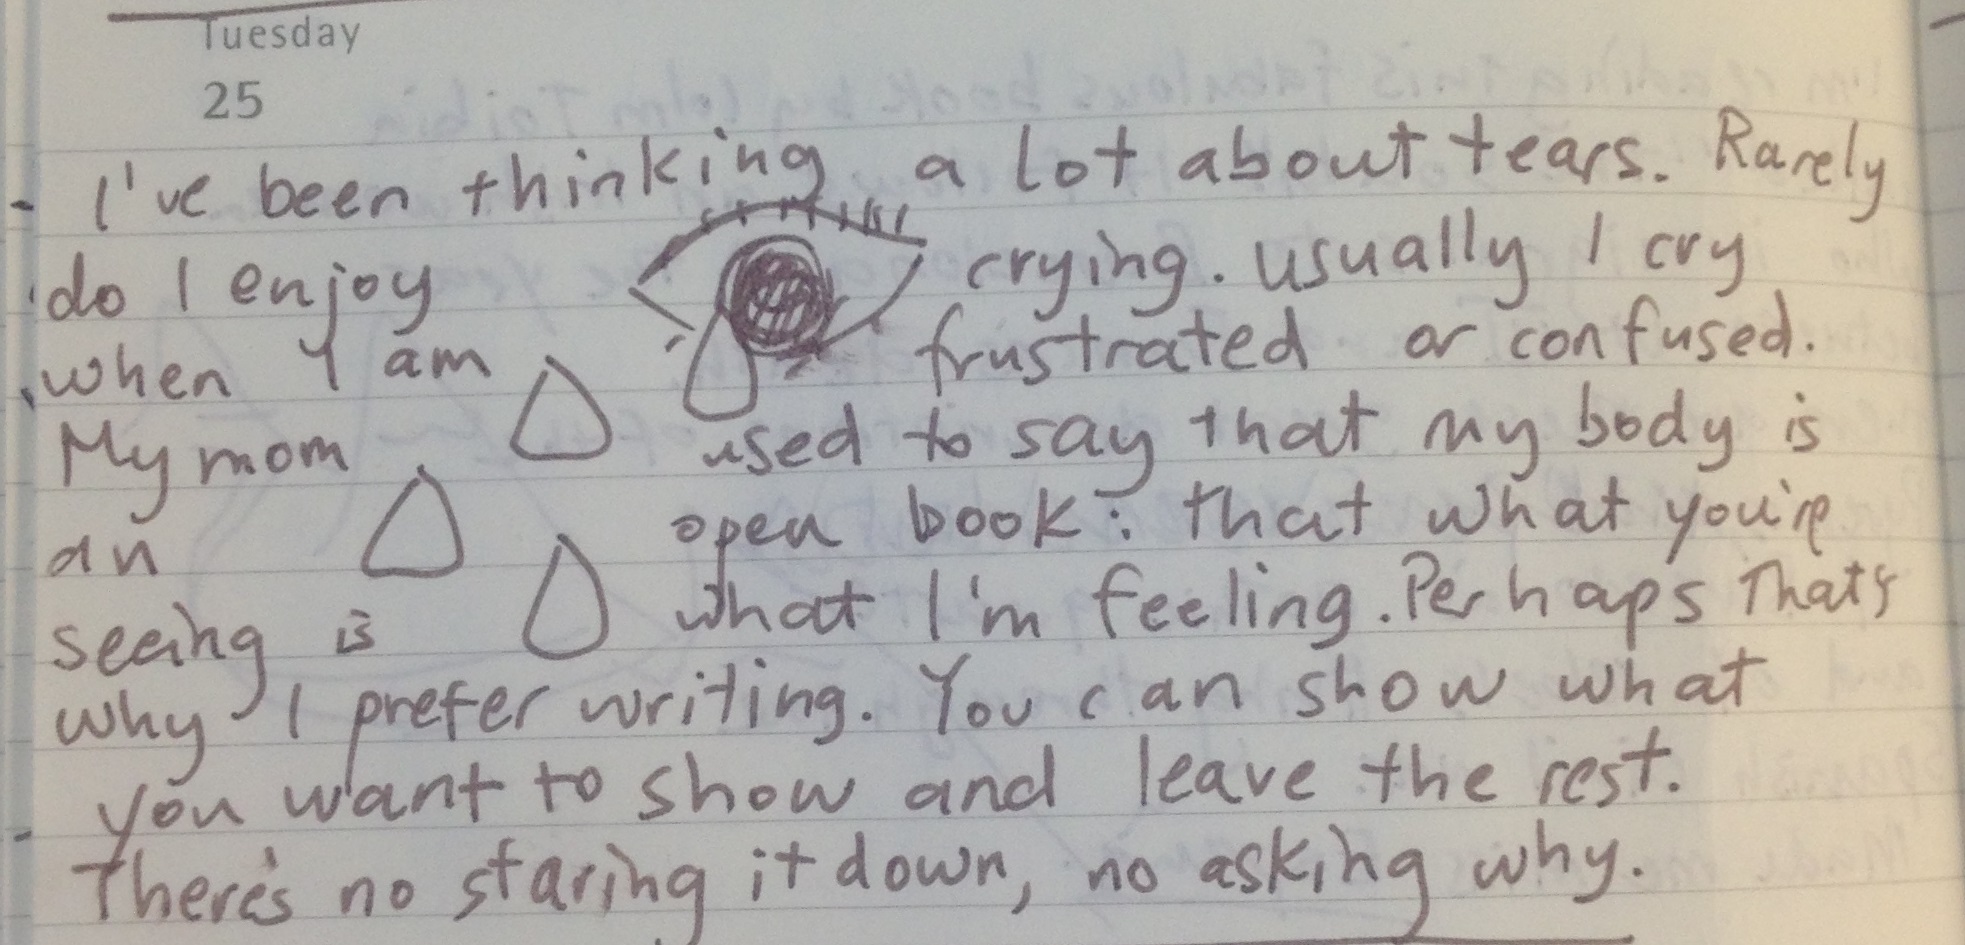 Tuesday
25
I've been thinking a lot about tears. Rarely
do I enjoy crying. usually I cry
when I am frustrated or confused.
My mom used to say that my body is
an open book: that what you're
seeing is what I'm feeling. Perhaps That's
why I prefer writing. You can show what
you want to show and leave the rest.
There's no staring it down, no asking why.